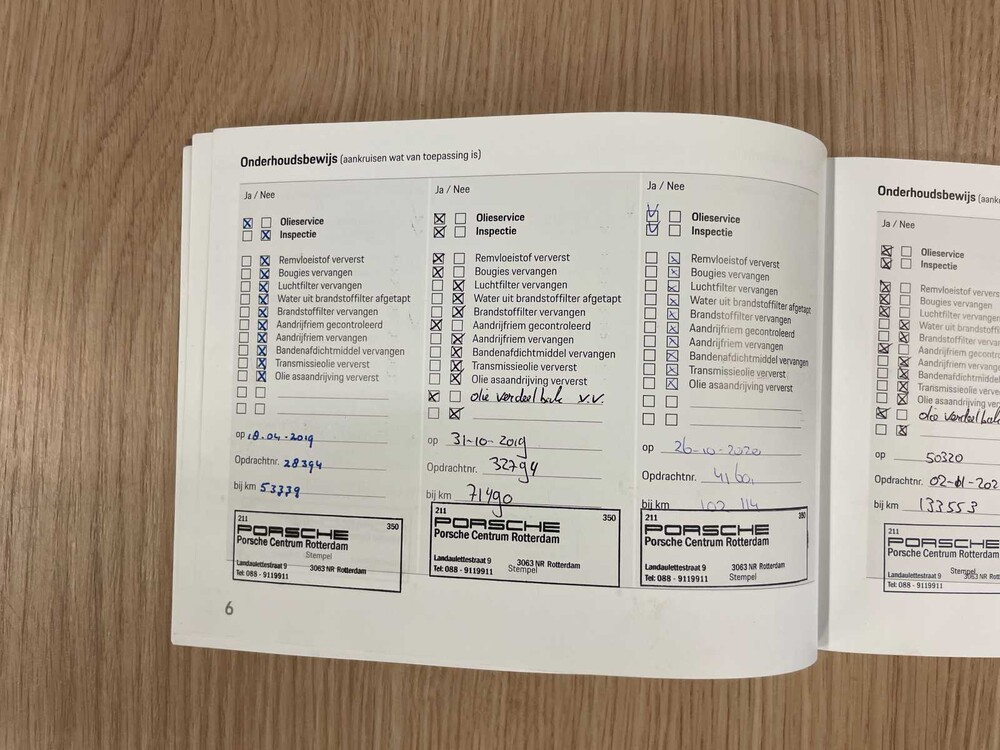 Onderhoudsbewijs (aankruisen wat van toepassing is)
Ja / Nee
Olieservice
Inspectie
Remvloeistof ververst
Bougies vervangen
Luchtfilter vervangen
Water uit brandstoffilter afgetapt
Brandstoffilter vervangen
Aandrijfriem gecontroleerd
Aandrijfriem vervangen
Bandenafdichtmiddel vervangen
Transmissieolie ververst
Olie asaandrijving ververst
op 18-04-2019
Opdrachtnr. 28394
bij km 53339
211 350
PORSCHE
Porsche Centrum Rotterdam
Stempel
Landaulettestraat 9 3063 NR Rotterdam
Tel: 088 - 9119911
6
Ja / Nee
Olieservice
Inspectie
Remvloeistof ververst
Bougies vervangen
Luchtfilter vervangen
Water uit brandstoffilter afgetapt
Brandstoffilter vervangen
Aandrijfriem gecontroleerd
Aandrijfriem vervangen
Bandenafdichtmiddel vervangen
Transmissieolie ververst
Olie asaandrijving ververst
olie verdeelbak v.v.
op 31-10-2019
Opdrachtnr. 32794
bij km 71490
211 350
PORSCHE
Porsche Centrum Rotterdam
Landaulettestraat 9 3063 NR Rotterdam
Tel: 088 - 9119911 Stempel
Ja / Nee
Olieservice
Inspectie
Remvloeistof ververst
Bougies vervangen
Luchtfilter vervangen
Water uit brandstoffilter afgetapt
Brandstoffilter vervangen
Aandrijfriem gecontroleerd
Aandrijfriem vervangen
Bandenafdichtmiddel vervangen
Transmissieolie ververst
Olie asaandrijving ververst
op 26-10-2020
Opdrachtnr.
bij km 102 114
211 350
PORSCHE
Porsche Centrum Rotterdam
Landaulettestraat 9 3063 NR Rotterdam
Tel: 088 - 9119911 Stempel
Onderhoudsbewijs
Ja / Nee
Olieservice
Inspectie
Remvloeistof
Bougies vervangen
Luchtfilter vervangen
Water uit
Brandstoffilter
Aandrijfriem
Aandrijfriem
Bandenafdichtmiddel
Transmissieolie
Olie asaandrijving
olie verdeelbak
op 50320
Opdrachtnr. 02-01-202
bij km 133553
211
PORSCHE
Porsche Centrum
Stempel
Landaulettestraat 9 3063 NR
Tel: 088 - 9119911